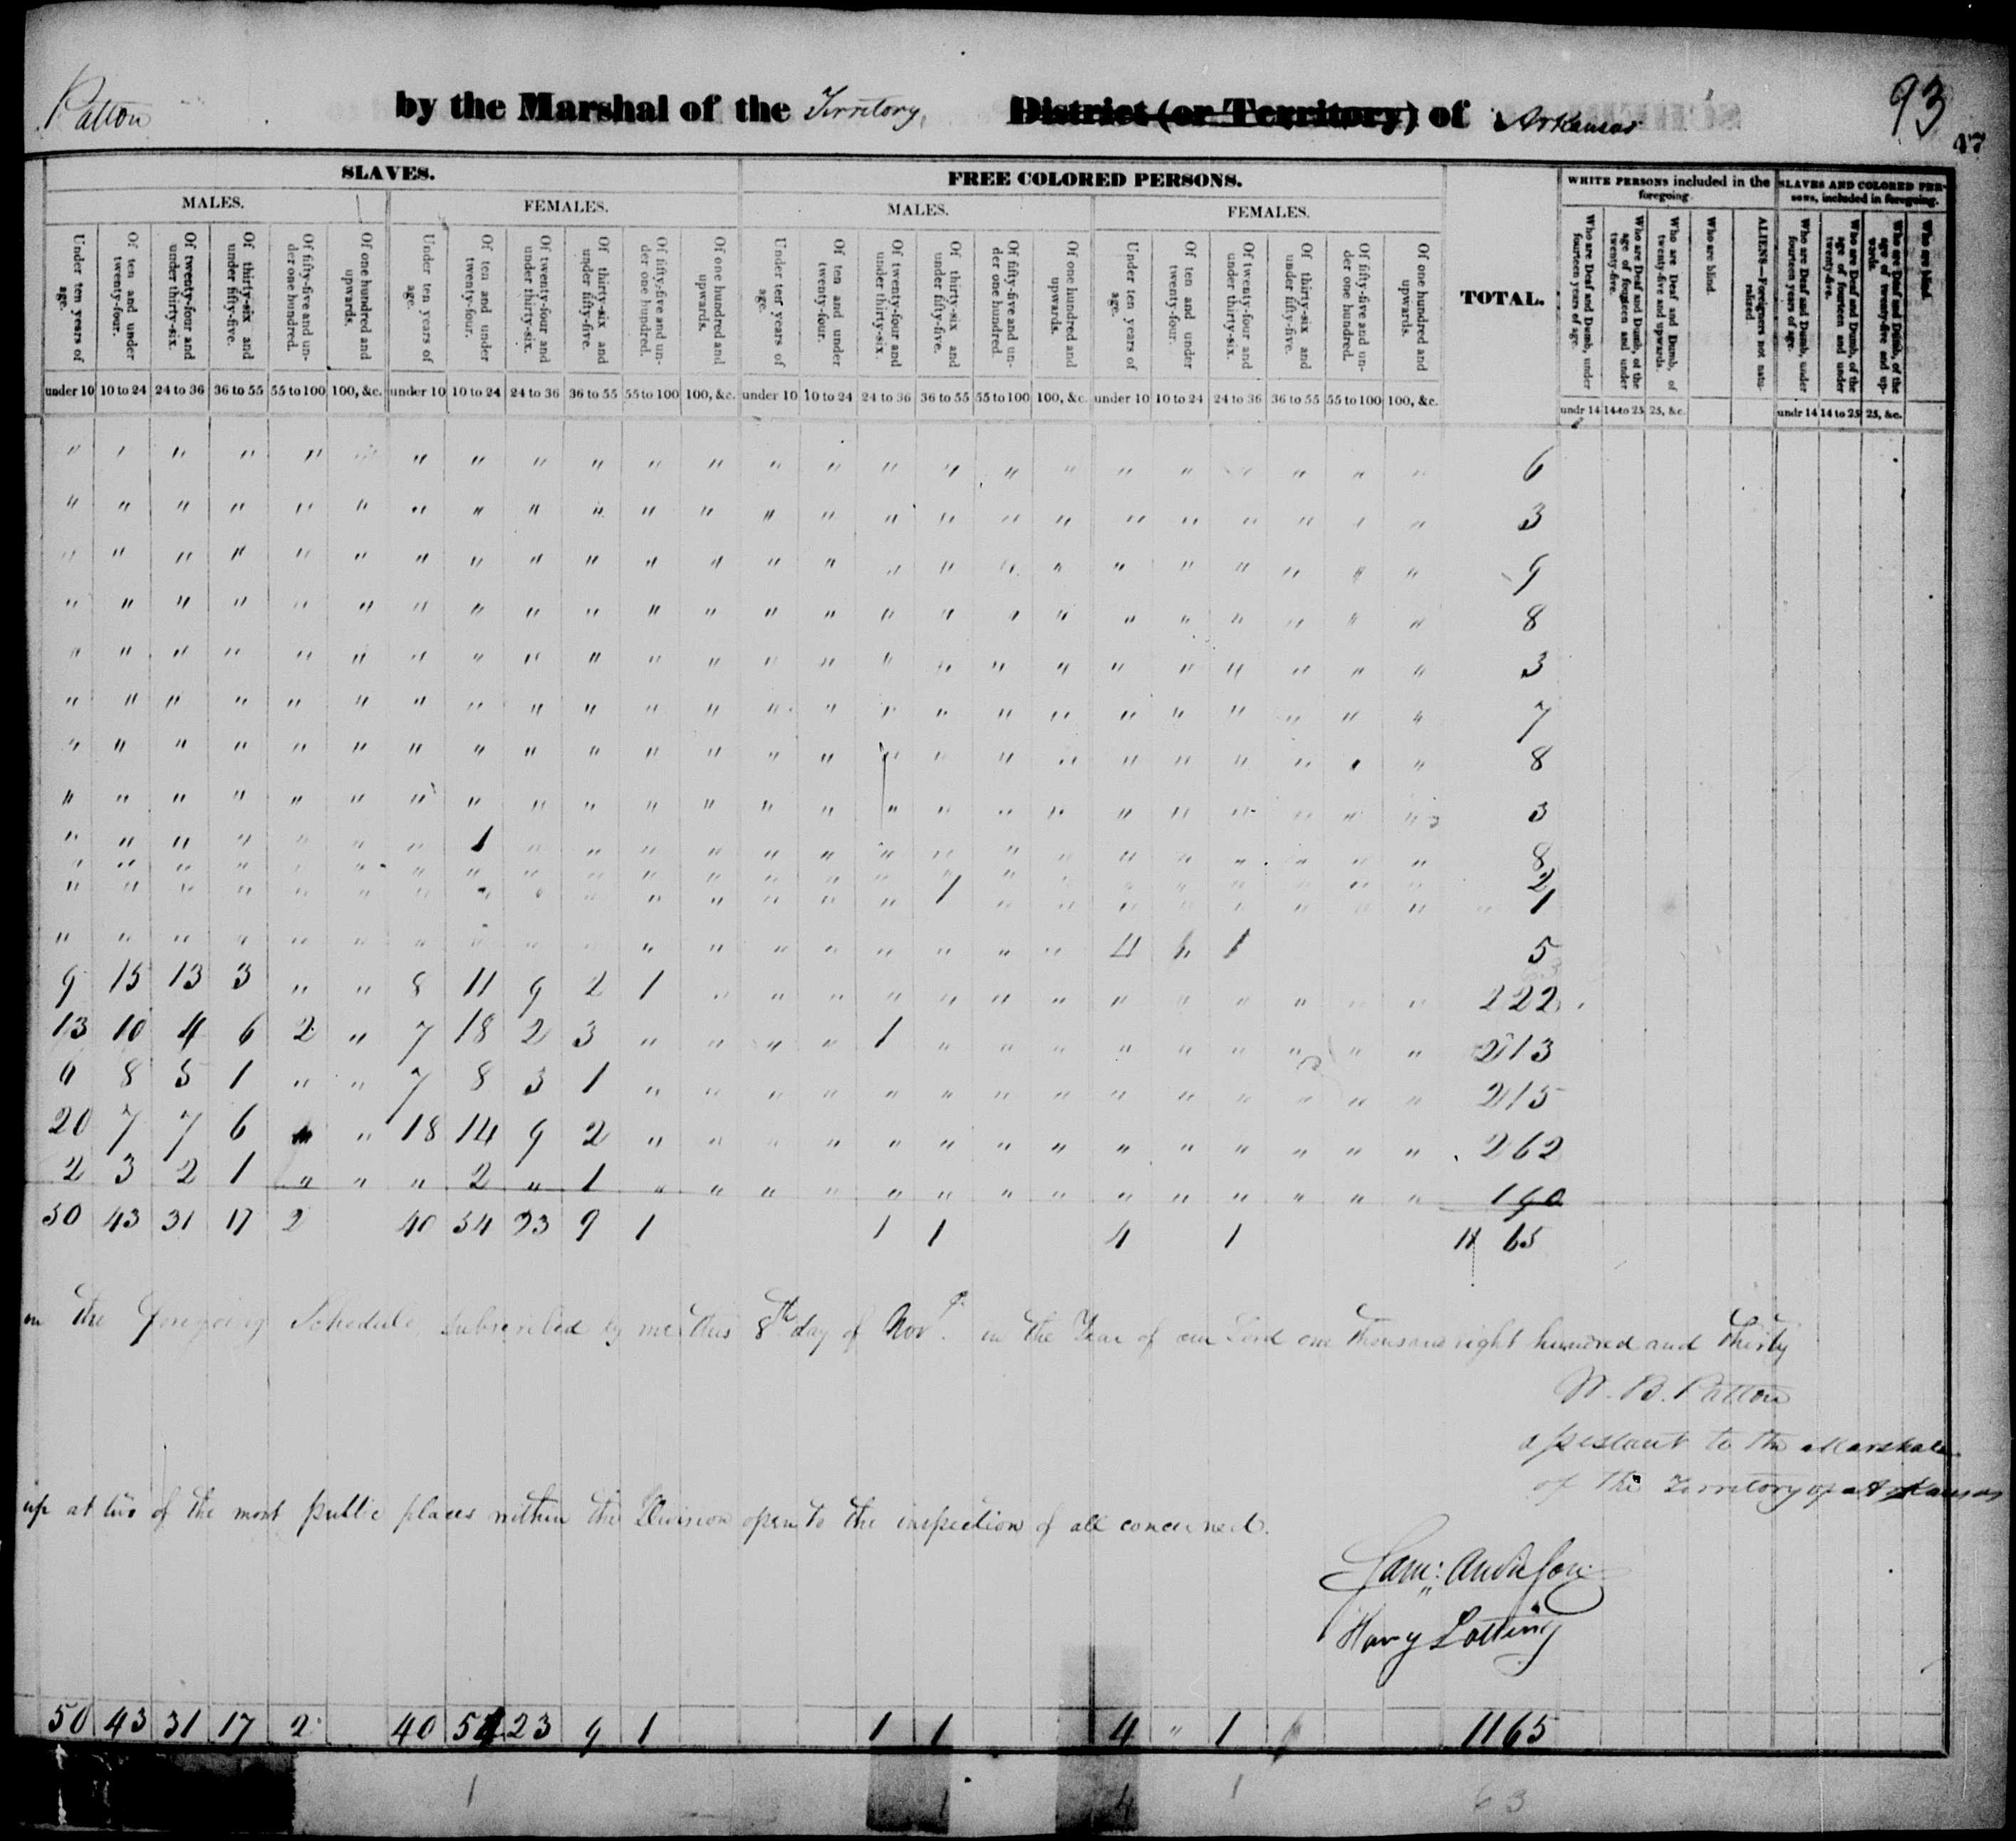 Patton by the Marshal of the Territory District (or Territory) of Arkansas 93
47
SLAVES. FREE COLORED PERSONS. TOTAL. WHITE PERSONS included in the foregoing. SLAVES AND COLORED PERSONS, included in foregoing.
MALES. FEMALES. MALES. FEMALES.
Under ten years of age. Of ten and under twenty-four. Of twenty-four and under thirty-six. Of thirty-six and under fifty-five. Of fifty-five and under one hundred. Of one hundred and upwards. Under ten years of age. Of ten and under twenty-four. Of twenty-four and under thirty-six. Of thirty-six and under fifty-five. Of fifty-five and under one hundred. Of one hundred and upwards. Under ten years of age. Of ten and under twenty-four. Of twenty-four and under thirty-six. Of thirty-six and under fifty-five. Of fifty-five and under one hundred. Of one hundred and upwards. Under ten years of age. Of ten and under twenty-four. Of twenty-four and under thirty-six. Of thirty-six and under fifty-five. Of fifty-five and under one hundred. Of one hundred and upwards. Who are Deaf and Dumb, under fourteen years of age. Who are Deaf and Dumb, of the age of fourteen and under twenty-five. Who are Deaf and Dumb, of twenty-five and upwards. Who are blind ALIENS—Foreigners not naturalized. Who are Deaf and Dumb, under fourteen years of age. Who are Deaf and Dumb, of the age of fourteen and under twenty-five. Who are Deaf and Dumb, of the age of twenty-five and upwards. Who are blind.
under 10 10 to 24 24 to 36 36 to 55 55 to 100 100, &c. under 10 10 to 24 24 to 36 36 to 55 55 to 100 100, &c. under 10 10 to 24 24 to 36 36 to 55 55 to 100 100, &c. under 10 10 to 24 24 to 36 36 to 55 55 to 100 100, &c. undr 14 14 to 25 25, &c. undr 14 14 to 25 25, &c.
" " " " " " " " " " " " " " " " " " " " " " " " 6
" " " " " " " " " " " " " " " " " " " " " " " " 3
" " " " " " " " " " " " " " " " " " " " " " " " 9
" " " " " " " " " " " " " " " " " " " " " " " " 8
" " " " " " " " " " " " " " " " " " " " " " " " 3
" " " " " " " " " " " " " " " " " " " " " " " " 7
" " " " " " " " " " " " " " " " " " " " " " " " 8
" " " " " " " " " " " " " " " " " " " " " " " " 3
" " " " " " " 1 " " " " " " " " " " " " " " " " 8
" " " " " " " " " " " " " " " " " " " " " " " " 2
" " " " " " " " " " " " " " " 1 " " " " " " " " 1
" " " " " " " " " " " " " " " " " " 4 " 1 5
9 15 13 3 " " 8 11 9 2 1 " " " " " " " " " " " " " 222
13 10 4 6 2 " 7 18 2 3 " " " " 1 " " " " " " " " " 213
6 8 5 1 " " 7 8 3 1 " " " " " " " " " " " " " " 215
20 7 7 6 " 18 14 9 2 " " " " " " " " " " " " " " 262
2 3 2 1 " " " 2 " 1 " " " " " " " " " " " " " " 190
50 43 31 17 2 40 54 23 9 1 1 1 4 1 11 65
in the foregoing Schedule, subscribed by me this 8th day of Novr. in the Year of our Lord one thousand eight hundred and Thirty
W. B. Patton
assistant to the Marshall
of the Territory of Arkansas
up at two of the most public places within the Division open to the inspection of all concerned.
Sam: Anderson
Harry Lotting
50 43 31 17 2 40 54 23 9 1 1 1 4 " 1 1165
1 1 4 1 63